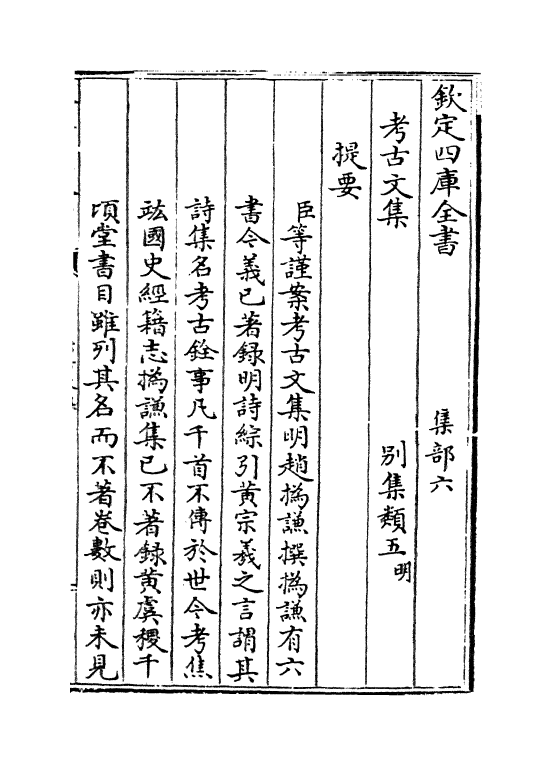 欽定四庫全書　集部六
考古文集　别集類五明
提要
臣等謹案考古文集明趙撝謙撰撝謙有六
書令義已著録明詩綜引黄宗羲之言謂其
詩集名考古銓事凡千首不傳於世今考焦
竑國史經籍志撝謙集已不著録黄虞稷千
頃堂書目雖列其名而不著卷數則亦未見